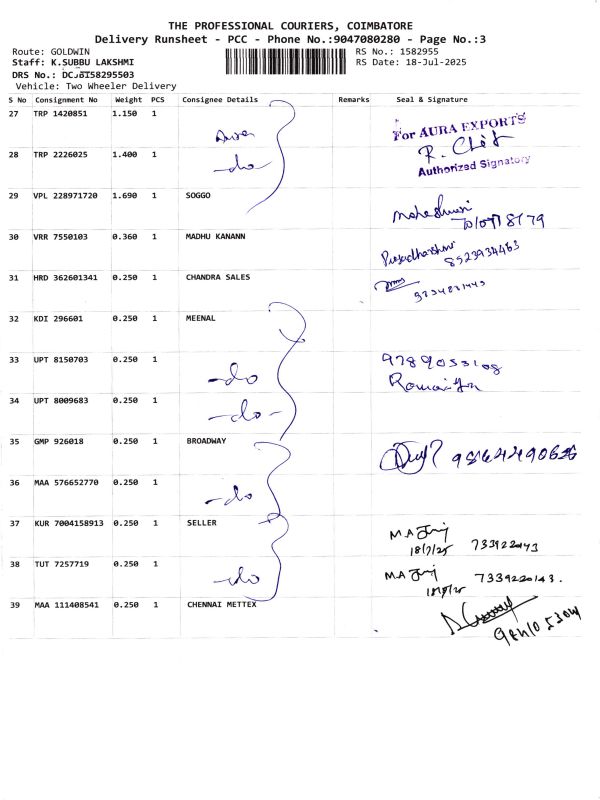 THE PROFESSIONAL COURIERS, COIMBATORE
Delivery Runsheet - PCC - Phone No.:9047080280 - Page No.:3
Route: GOLDWIN
RS No.: 1582955
Staff: K.SUBBU LAKSHMI
RS Date: 18-Jul-2025
DRS No.: DCJGI58295503
Vehicle: Two Wheeler Delivery
S No Consignment No Weight PCS Consignee Details Remarks Seal & Signature
27 TRP 1420851 1.150 1
For AURA EXPORTS
Authorized Signatory
28 TRP 2226025 1.400 1 -do-
29 VPL 228971720 1.690 1 SOGGO
30 VRR 7550103 0.360 1 MADHU KANANN
Priyadharshni
8523934463
31 HRD 362601341 0.250 1 CHANDRA SALES
32 KDI 296601 0.250 1 MEENAL
33 UPT 8150703 0.250 1 -do
9789053108
34 UPT 8009683 0.250 1 -do-
35 GMP 926018 0.250 1 BROADWAY
36 MAA 576652770 0.250 1 -do
37 KUR 7004158913 0.250 1 SELLER
M.A
18/7/25 7339220143
38 TUT 7257719 0.250 1 -do
M.A
18/7/25 7339220143.
39 MAA 111408541 0.250 1 CHENNAI METTEX